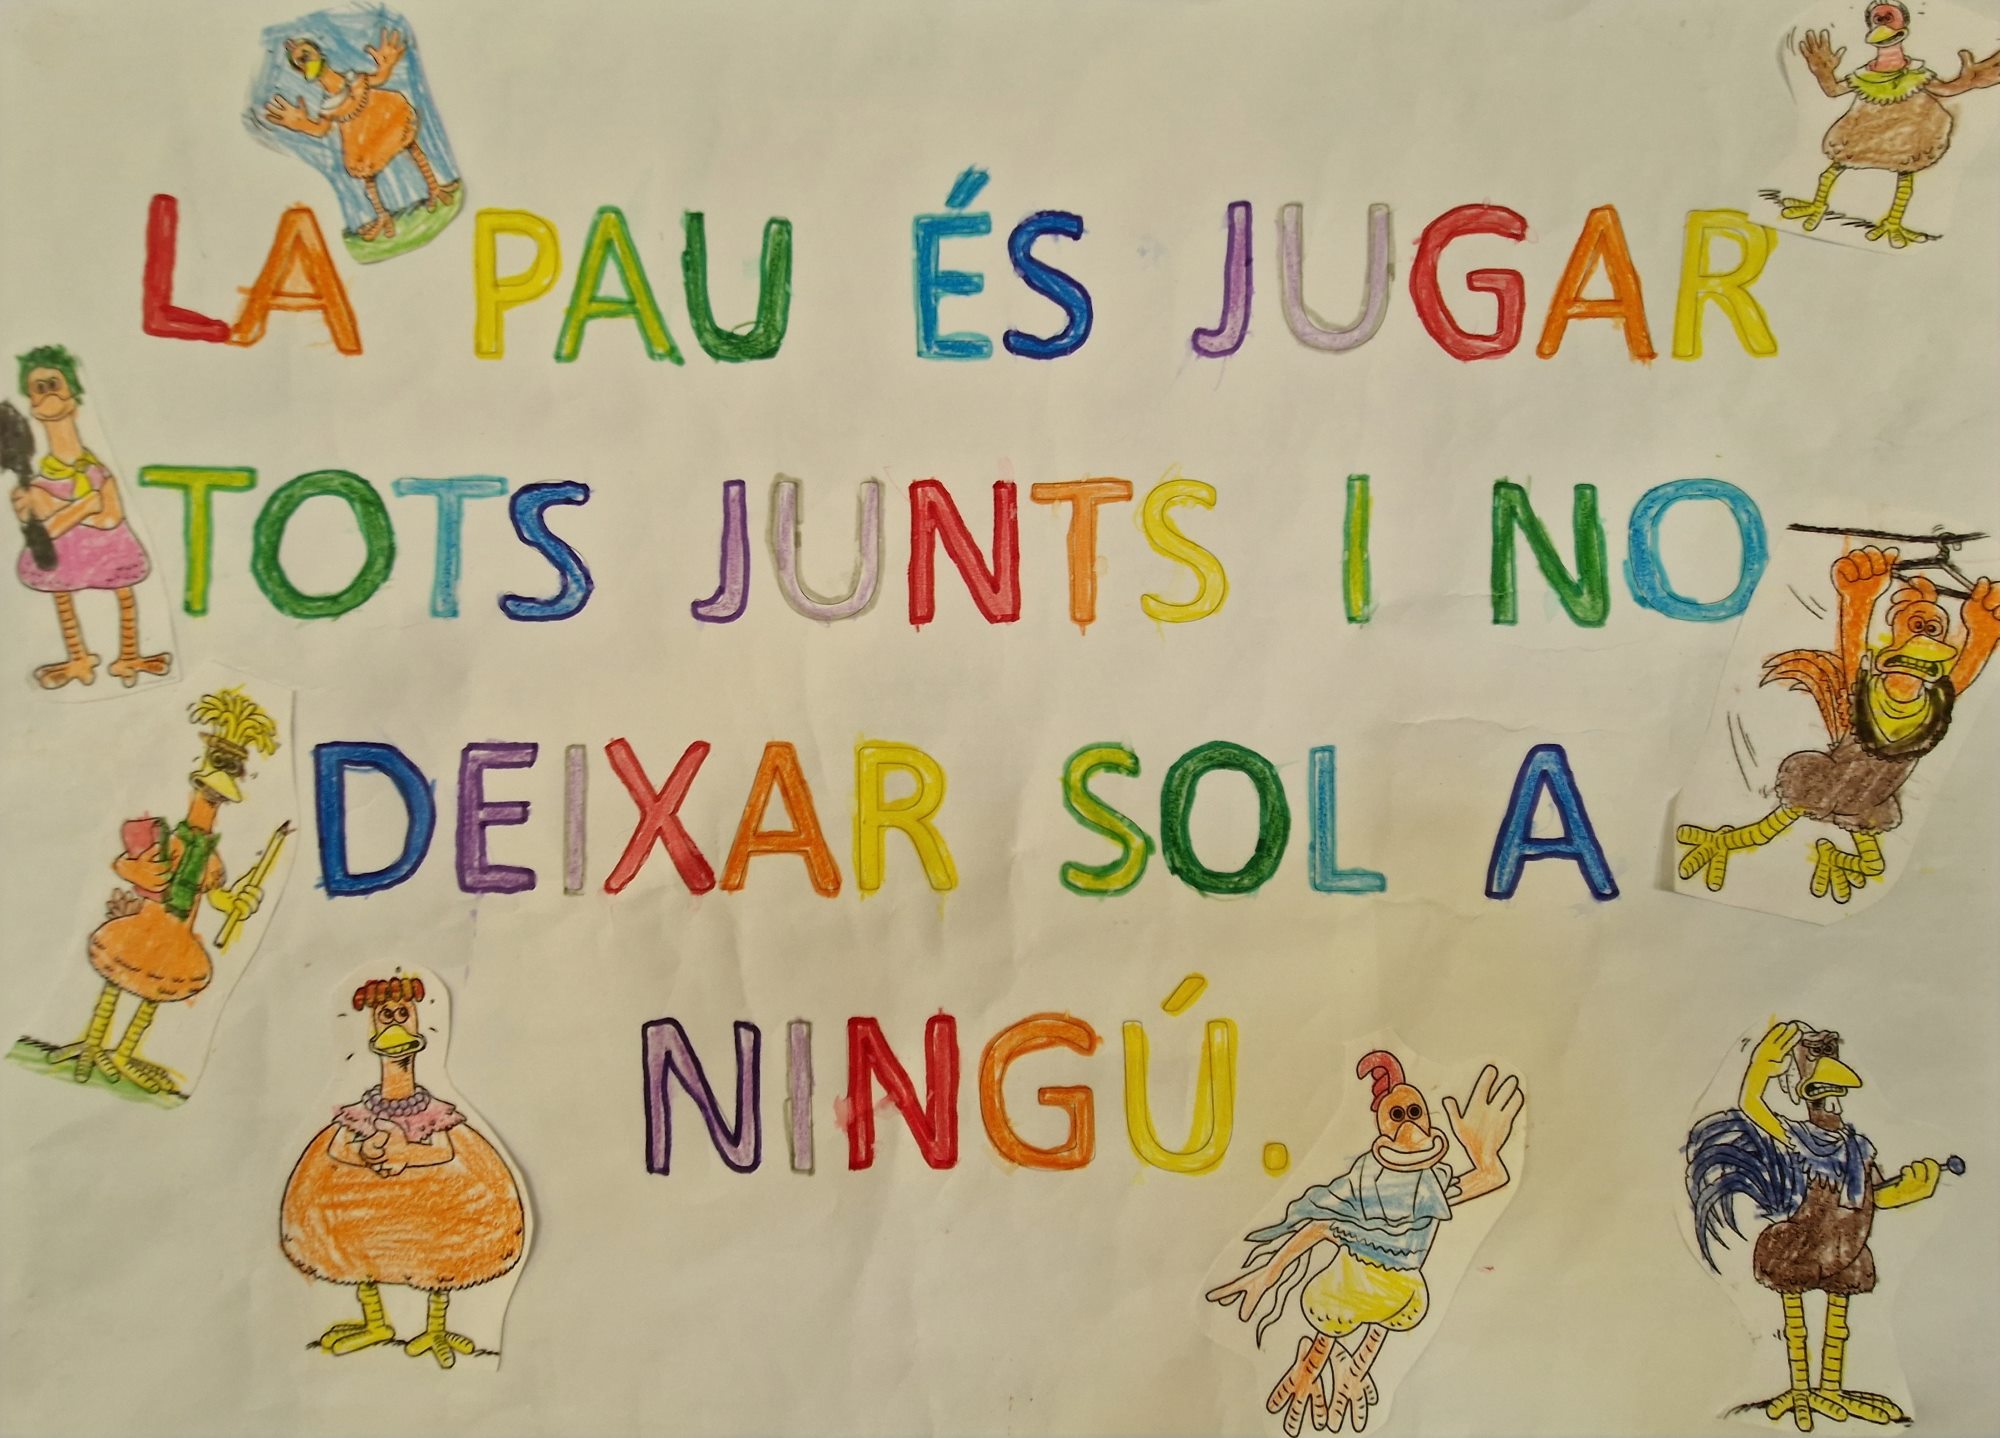 LA PAU ÉS JUGAR
TOTS JUNTS I NO
DEIXAR SOL A
NINGÚ.